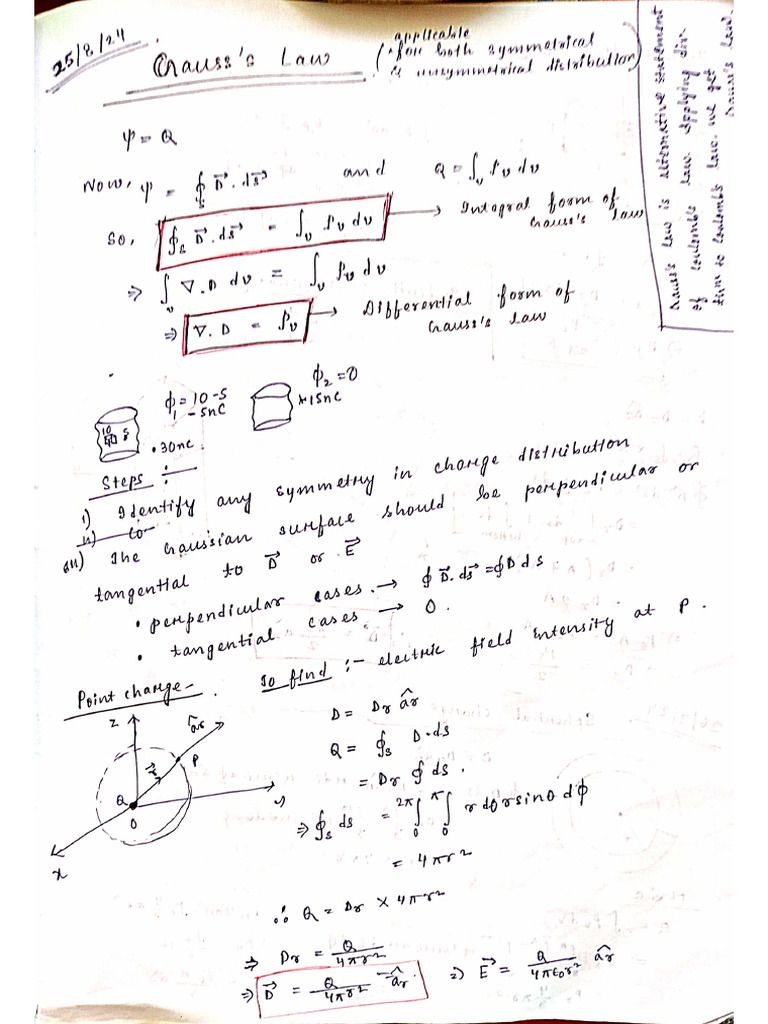 25/8/24
Gauss's Law (applicable for both symmetrical & unsymmetrical distribution)
Gauss's Law is alternative statement
of Coulomb's law. Applying div.
turn to Coulomb's law, we get
Gauss's Law.
ψ = Q
Now, ψ = ∮s D⃗.ds⃗ and Q = ∫v ρv dv
So, ∮s D⃗.ds⃗ = ∫v ρv dv → Integral form of Gauss's Law
⇒ ∫v ∇.D dv = ∫v ρv dv
⇒ ∇.D = ρv → Differential form of Gauss's Law
ϕ1 = 10-5
-5nC
ϕ2 = 0
15nC
10
5
.30nC.
Steps :-
i) Identify any symmetry in charge distribution
ii) Co
iii) The Gaussian surface should be perpendicular or
tangential to D⃗ or E⃗
• perpendicular cases. → ∮ D⃗.ds⃗ = ∮ D ds
• tangential cases → 0.
Point charge - To find :- electric field intensity at P.
z
âr
r⃗
P
Q
O
y
x
D = Dr âr
Q = ∮s D.ds
= Dr ∮ ds.
⇒ ∮s ds = 2π∫0 π∫0 r dθ r sinθ dϕ
= 4πr²
∴ Q = Dr × 4πr²
⇒ Dr = Q/4πr²
⇒ D⃗ = Q/4πr² âr. ⇒ E⃗ = Q/4πϵ0r² âr